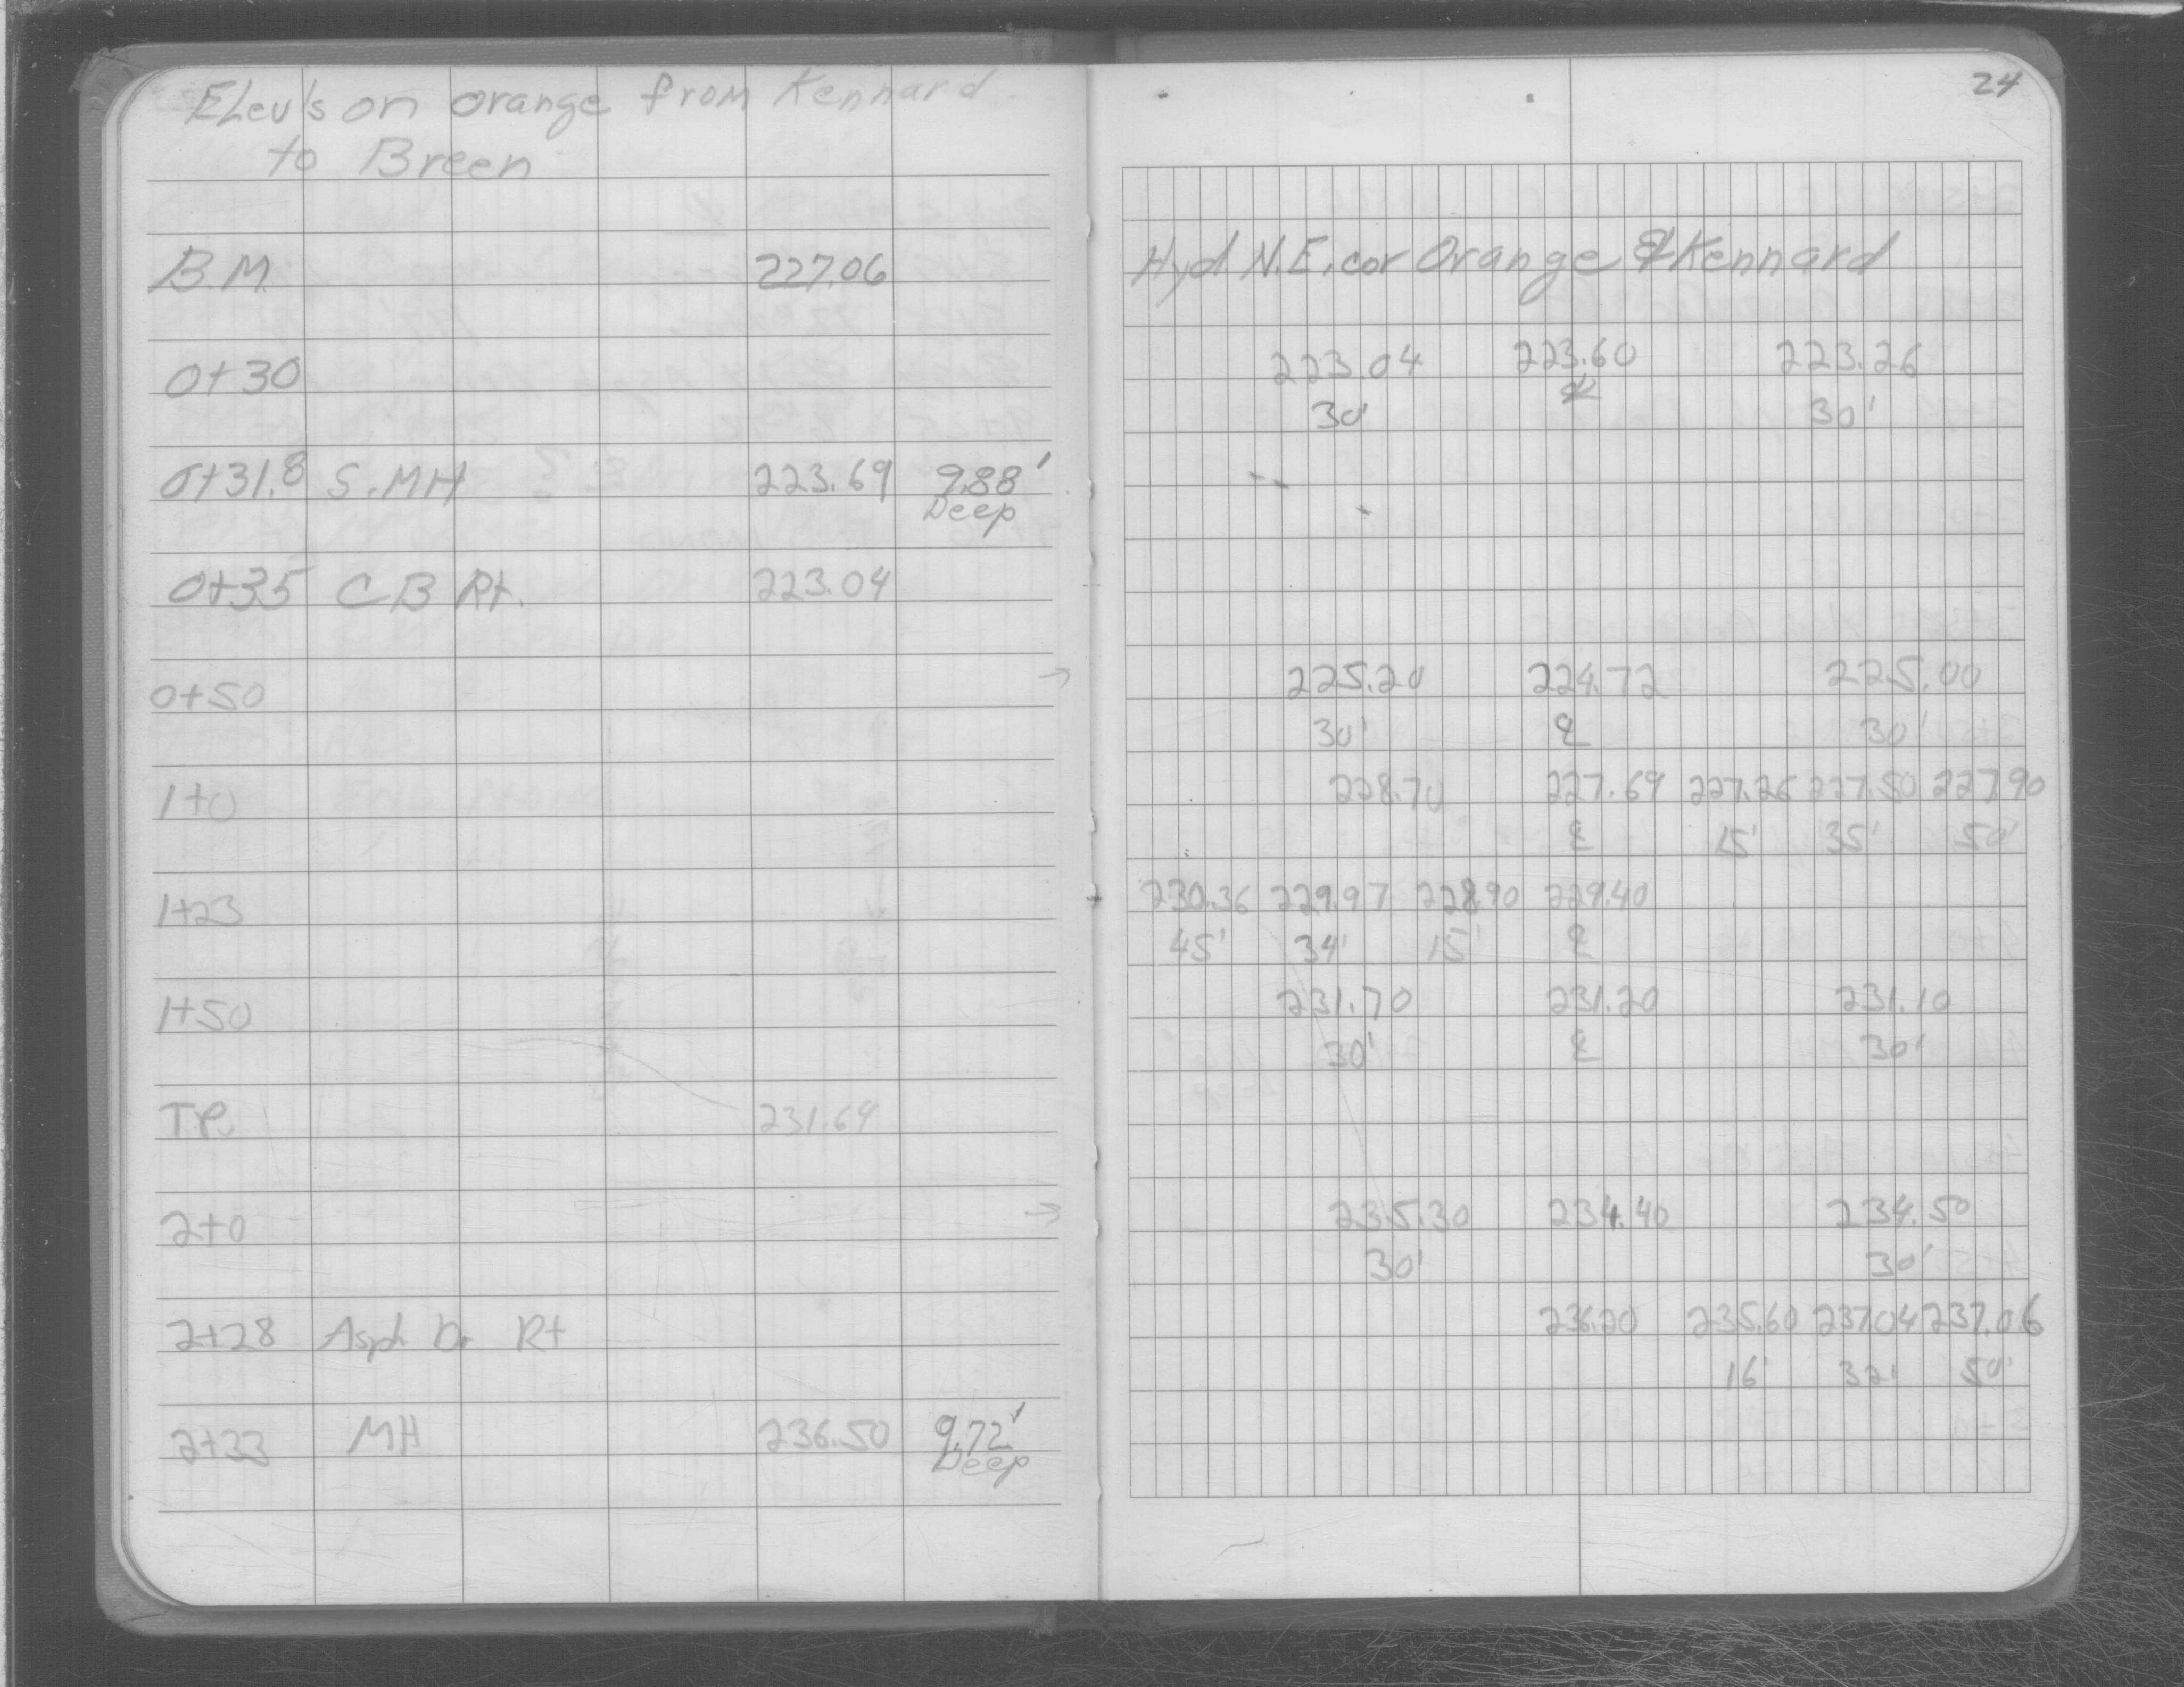 ELev's on orange from Kennard
to Breen
24
B.M. 227.06 Hyd N.E. cor Orange & Kennard
0+30 223.04 223.60 223.26
30' ℄ 30'
0+31.8 S.MH 223.69 9.88'
Deep
0+35 CB Rt. 223.04
0+50 → 225.20 224.72 225.00
30' ℄ 30'
1+0 228.70 227.69 227.26 227.50 227.90
℄ 15' 35' 50'
1+23 230.36 229.97 228.90 229.40
45' 34' 15' ℄
1+50 231.70 231.20 231.10
30' ℄ 30'
T.P. 231.69
2+0 → 235.30 234.40 234.50
30' 30'
2+28 Asph Dr Rt 236.20 235.60 237.04 237.06
16' 32' 50'
2+33 MH 236.50 9.72'
Deep